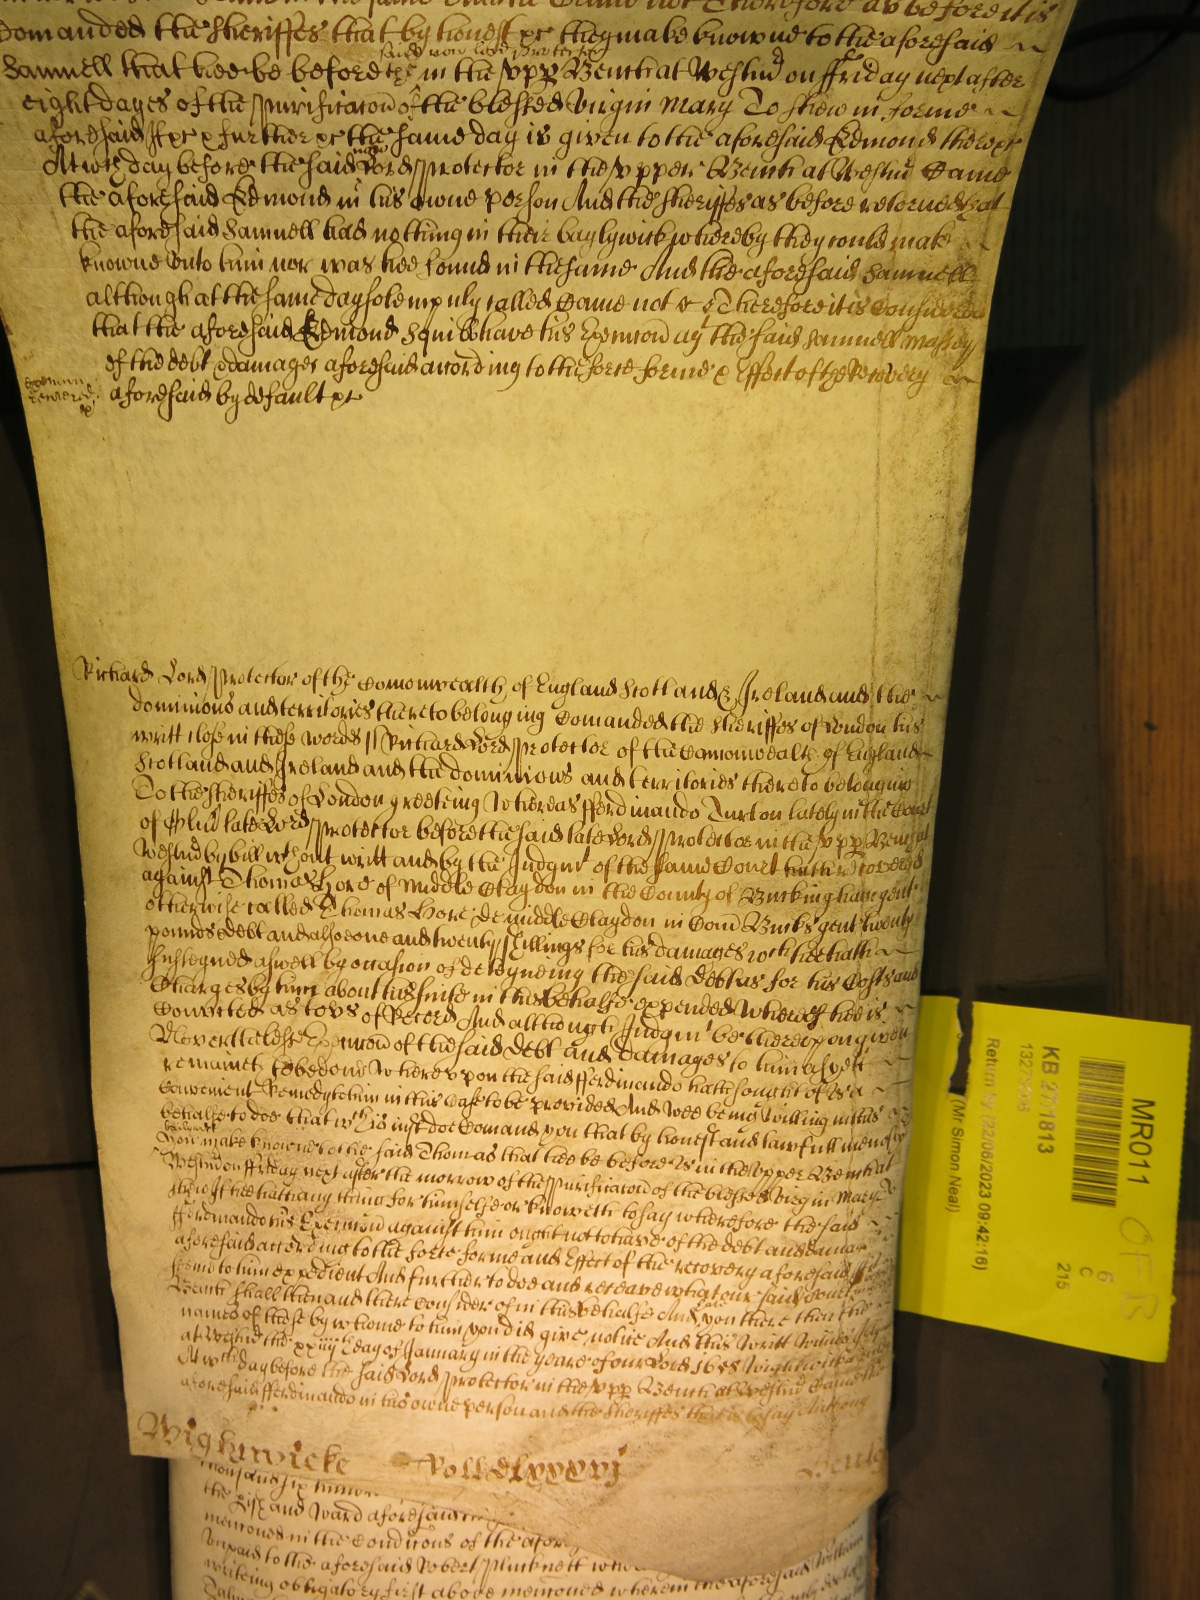 Comanded the Sheriffes that by honest &c they make knowne to the aforesaid
said now lord protector
Samuell that hee be before &c in the upp Bench at Westmr on ffriday next after
eight dayes of the Purificacon of the blessed Virgin Mary To shew in forme
aforesaid If &c & further &c the same day is given to the aforesaid Edmond there &c
now
At wch day before the said Lord Protector in the Upper Bench at Westmr Came
the aforesaid Edmond in his owne person And the Sheriffes as before retorned that
the aforesaid Samuell had nothing in their baylywick whereby they could make
knowne unto him nor was hee found in the same And the aforesaid Samuell
although at the same day solempnly called Came not &c Therefore it is Considered
that the aforesaid Edmond Squibb have his Execucon agt the said Samuell Massey
of the debt & damages aforesaid according to the force forme & Effect of the Recovery
aforesaid by default &c
Richard Lord Protector of the Comonwealth of England Scotland & Ireland and the
dominions and territories thereto belonging Comanded the Sheriffes of London his
writt close in these words Richard Lord Protector of the Comonwealth of England
Scotland and Ireland and the dominions and territories thereto belonging
To the Sheriffes of London greeting Whereas fferdinando Turton lately in the Court
of Oliver late Lord Protector before the said late Lord Protector in the Upp Bench at
Westmr by bill without writt and by the Judgmt of the same Court hath recovered
against Thomas Hore of Middle Claydon in the County of Buckingham gent
otherwise called Thomas Hore de middle Claydon in Com Bucks gent twenty
pounds debt and alsoe one and twenty shillings for his damages which hee hath
susteyned aswell by occasion of deteyneing the said debt as for his Costs and
Charges by him about his suite in this behalfe expended Whereof hee is
Convicted as toys of Record And although Judgmt be thereupon given
Neverthelesse Execucon of the said debt and damages to him as yett
remaines to be done Whereupon the said fferdinando hath sought of Us a
Convenient Remedy to him in this Case to be provided And Wee being willing in this
behalfe to doe that wch is just doe Comand you that by honest and lawfull men of
bailywick
you make knowne to the said Thomas that hee be before Us in the Upper Bench at
Westmr on ffriday next after the morrow of the Purificacon of the blessed Virgin Mary To
shew If hee hath any thing for himselfe or knoweth to say wherefore the said
fferdinando his Execucon against him ought not to have of the debt and damages
aforesaid according to the force forme and Effect of the recovery aforesaid
seeme to him expedient And further to doe and receave what our said Court
Bench shall then and there Consider of in this behalfe And have you there then the
names of those by whome to him you did give notice And this Writt Witnes
at Westmr the xxiiijth day of January in the yeare of our Lord 1658 Wightwick
At wch day before the said Lord Protector in the Upp Bench at Westmr Came the
aforesaid fferdinando in his owne person and the Sheriffes that is to say Anthony
Wightwicke Roll dlxxxvj
the Pish and Ward aforesaid
menconed in the Condicions of the afor
unpaid to the aforesaid Robert Pluncknett
writeing obligatory first above menconed wherein the aforesaid William
MR011
KB 27/1813
Return by (22/06/2023 09:42:16)
(Mr Simon Neal)
6
C
215
OF B